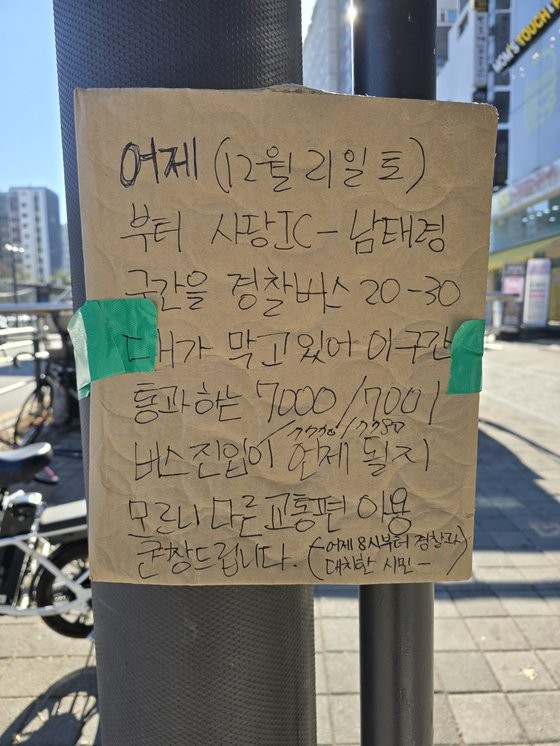 어제 (12월 21일 토)
부터 사당IC - 남태령
구간을 경찰버스 20-30
대가 막고있어 이구간
통과하는 7000/7001
/7770/7780
버스진입이 언제 될지
모르니 다른 교통편 이용
군창드립니다. (-어제 8시부터 경찰과
대치한 시민-)
MOM'S TOUCH